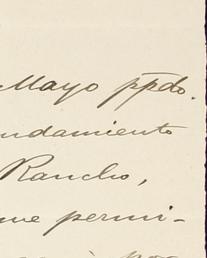 Mayo ppdo.
ndamiento
Rancho,
permi-